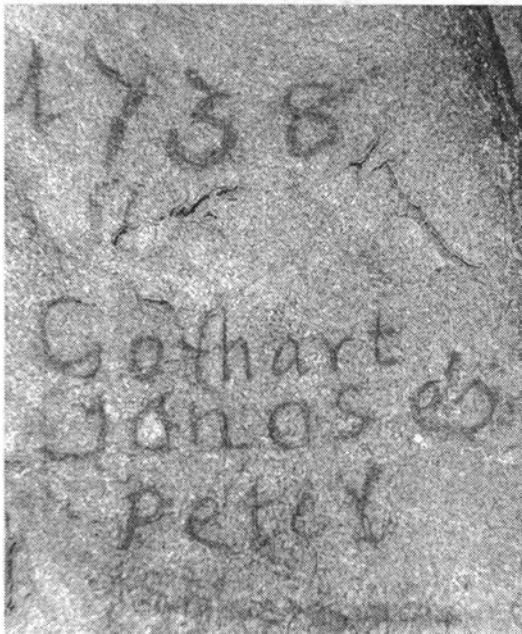 1738
Gothart
János és
peter